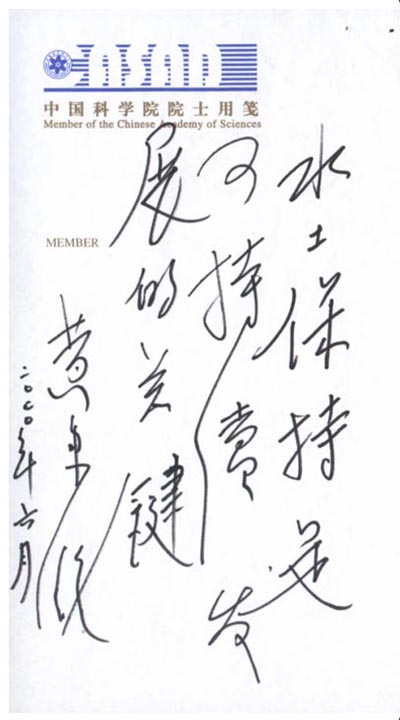 CASAD
中国科学院院士用笺
Member of the Chinese Academy of Sciences
MEMBER
水土保持是
可持续发
展的关键
黄秉维
二〇〇〇年六月